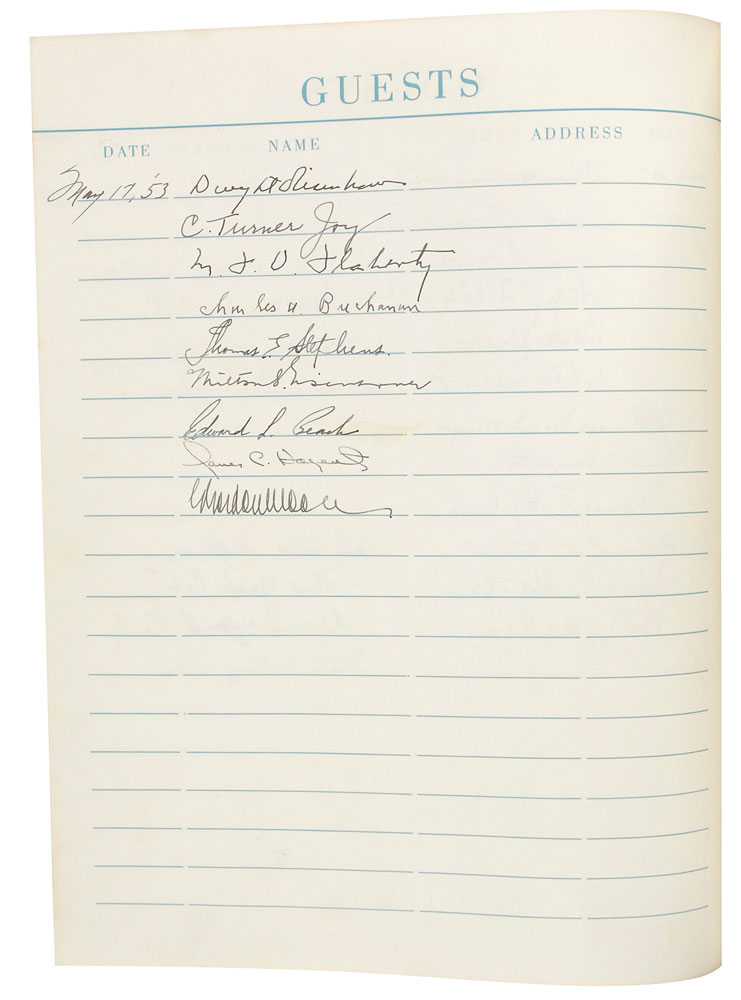 GUESTS
DATE NAME ADDRESS
May 17, '53 Dwight D Eisenhower
C. Turner Joy
M. J. O. Flaherty
Charles A. Buchanan
Thomas E. Stephens.
Milton S. Eisenhower
Edward L. Beach
James C. Hagerty